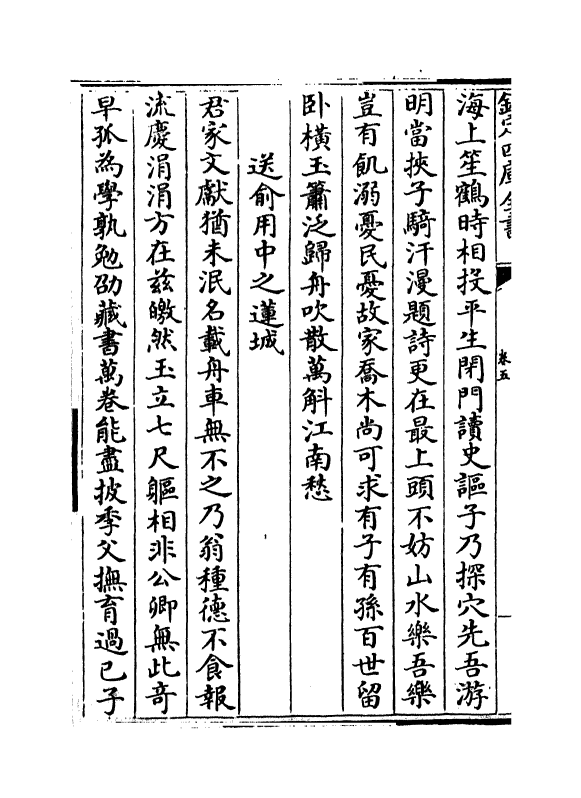 欽定四庫全書
卷五
海上笙鶴時相投平生閉門讀史謳子乃探穴先吾游
明當挾子騎汗漫題詩更在最上頭不妨山水樂吾樂
豈有飢溺憂民憂故家喬木尚可求有子有孫百世留
卧橫玉簫泛歸舟吹散萬斛江南愁
送俞用中之蓮城
君家文獻猶未泯名載舟車無不之乃翁種德不食報
流慶涓涓方在兹皦然玉立七尺軀相非公卿無此奇
早孤為學孰勉劭藏書萬卷能盡披季父撫育過己子